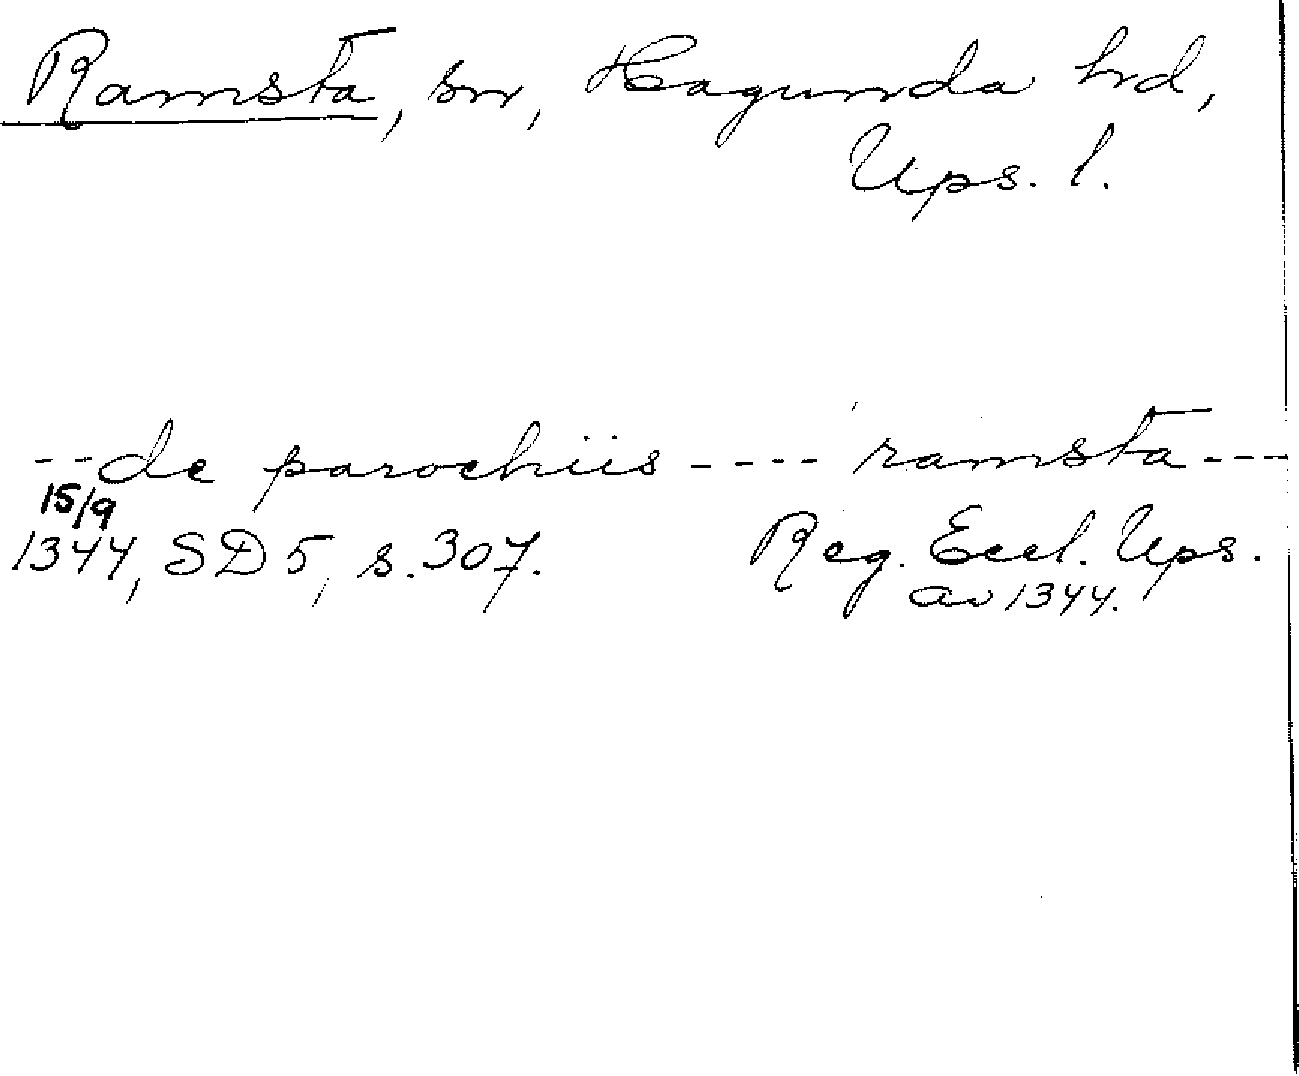 Ramsta, sn, Hagunda hd,
Ups. l.
--de parochiis ---- ramsta---
15/9
1344, SD 5, s. 307. Reg. Eccl. Ups.
av 1344.